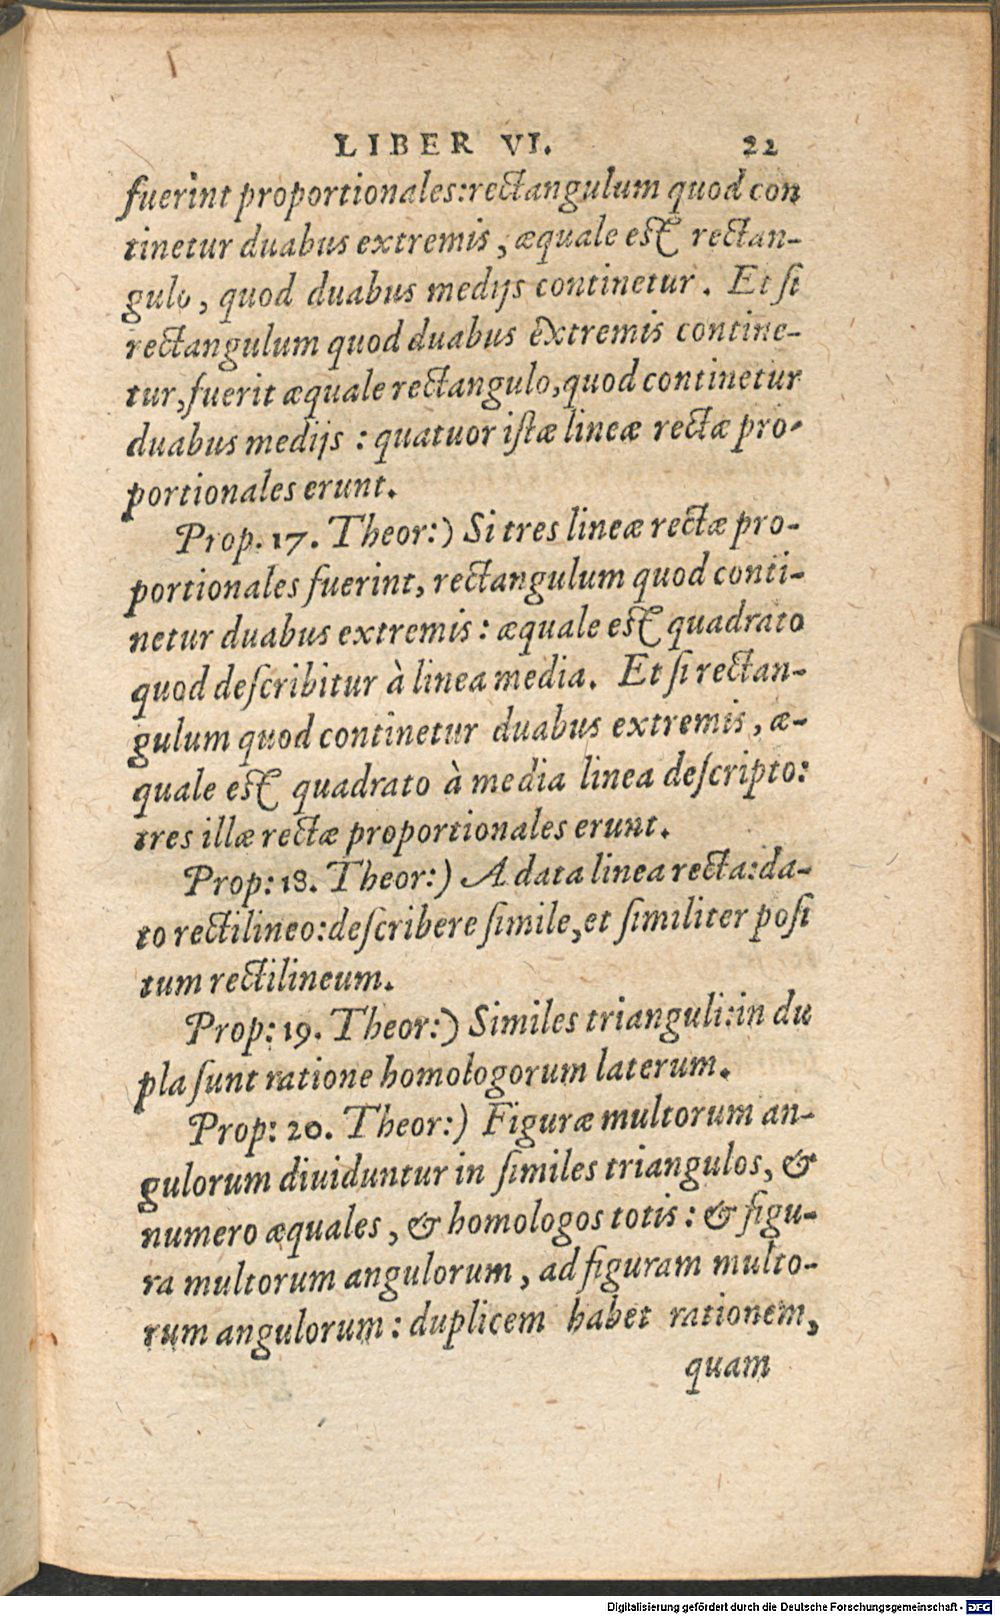 LIBER VI. 22
fuerint proportionales:rectangulum quod con
tinetur duabus extremis, æquale est rectan-
gulo, quod duabus medijs continetur. Et si
rectangulum quod duabus extremis contine-
tur, fuerit æquale rectangulo, quod continetur
duabus medijs : quatuor istæ lineæ rectæ pro-
portionales erunt.
Prop. 17. Theor:) Si tres lineæ rectæ pro-
portionales fuerint, rectangulum quod conti-
netur duabus extremis : æquale est quadrato
quod describitur à linea media. Et si rectan-
gulum quod continetur duabus extremis, æ-
quale est quadrato à media linea descripto:
tres illæ rectæ proportionales erunt.
Prop: 18. Theor:) A data linea recta:da-
to rectilineo:describere simile, et similiter posi
tum rectilineum.
Prop: 19. Theor:) Similes trianguli:in du
pla sunt ratione homologorum laterum.
Prop: 20. Theor:) Figuræ multorum an-
gulorum diuiduntur in similes triangulos, &
numero æquales, & homologos totis : & figu-
ra multorum angulorum, ad figuram multo-
rum angulorum : duplicem habet rationem,
quam
Digitalisierung gefördert durch die Deutsche Forschungsgemeinschaft - DFG